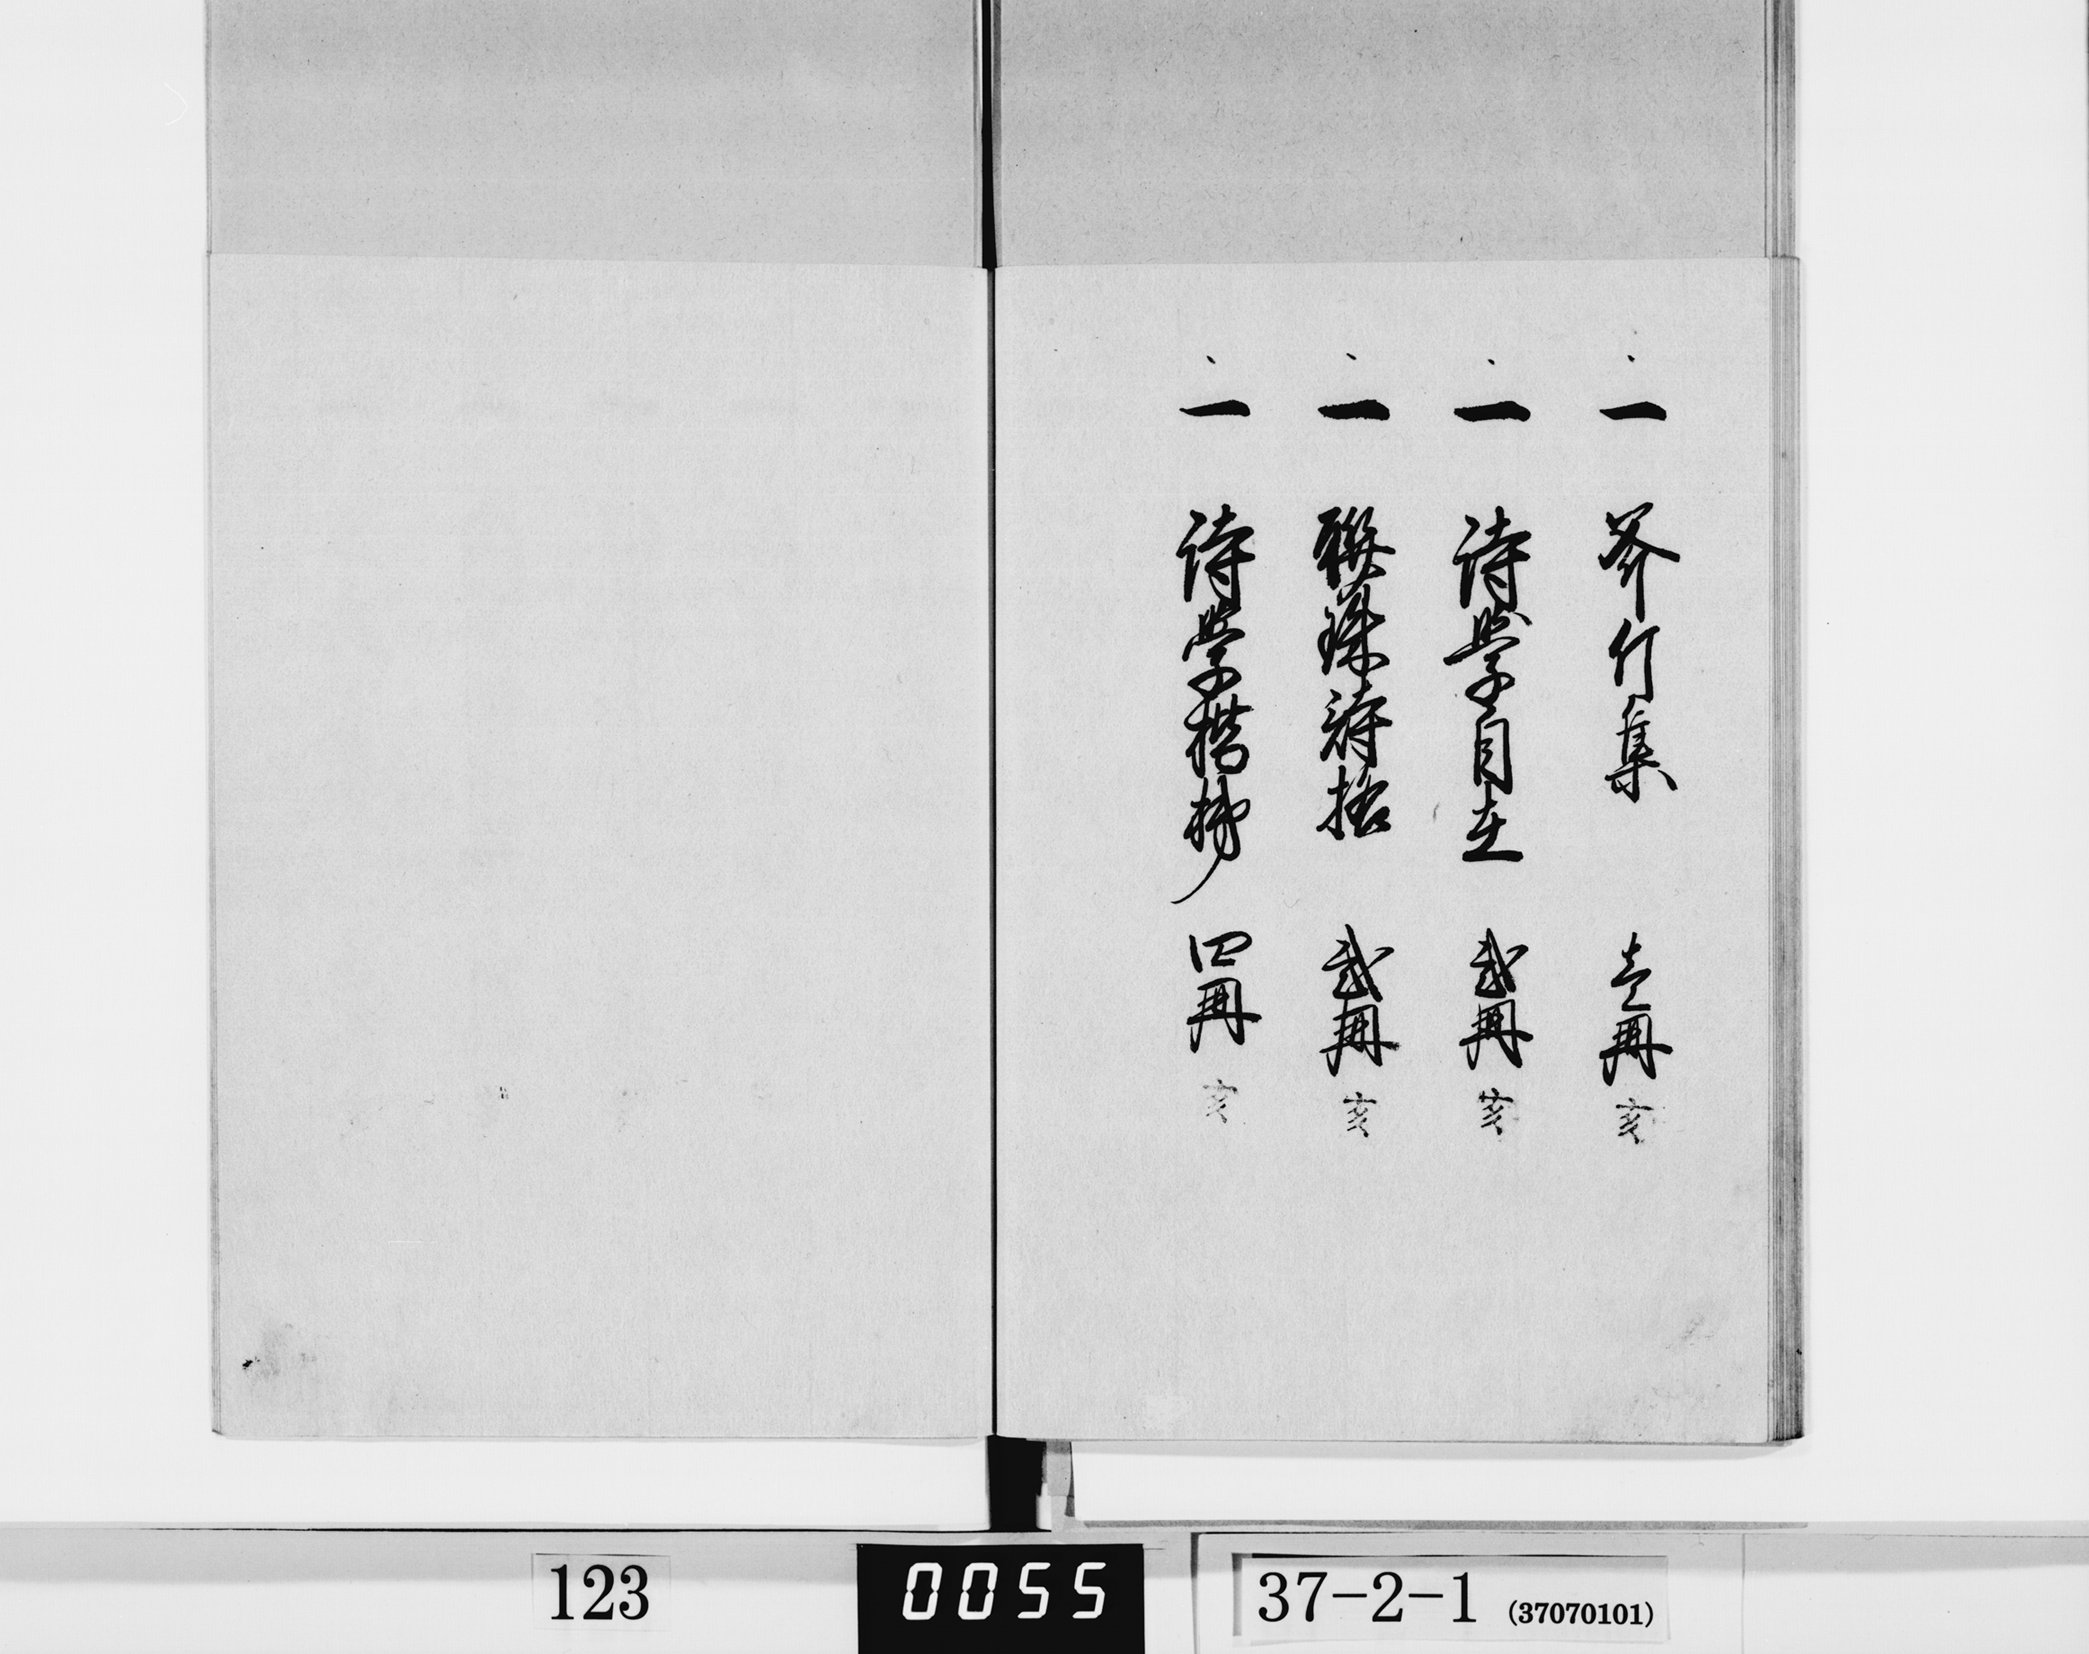 一 斧竹集 壱冊 亥
一 詩学自在 弐冊 亥
一 聯珠詩格 弐冊 亥
一 詩学楷梯 四冊 亥
123
0055
37-2-1 (37070101)